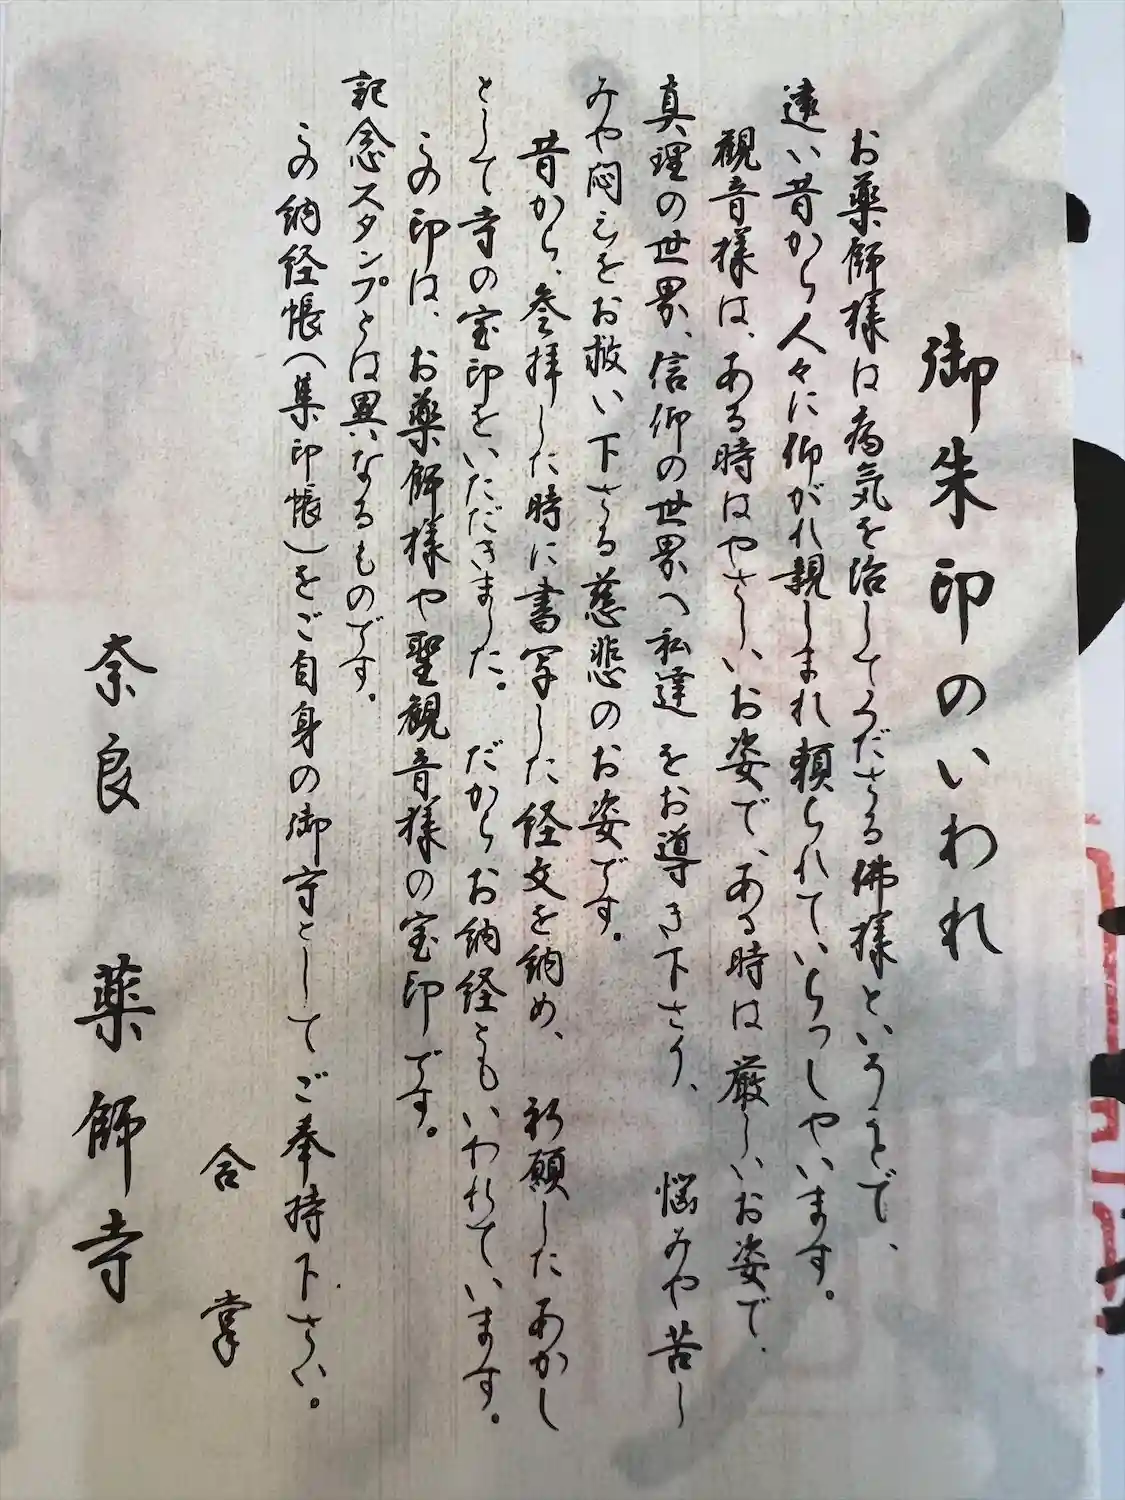 御朱印のいわれ
お薬師様は病気を治してくださる佛様というので、
遠い昔から人々に仰がれ親しまれ頼られていらっしやいます。
観音様は、ある時はやさしいお姿で、ある時は厳しいお姿で、
真理の世界、信仰の世界へ私達をお導き下さり、悩みや苦し
みや悶えをお救い下さる慈悲のお姿です。
昔から、参拝した時に書写した経文を納め、祈願したあかし
として寺の宝印をいただきました。だからお納経ともいわれています。
この印は、お薬師様や聖観音様の宝印です。
記念スタンプとは異なるものです。
この納経帳(集印帳)をご自身の御守としてご奉持下さい。
合掌
奈良 薬師寺